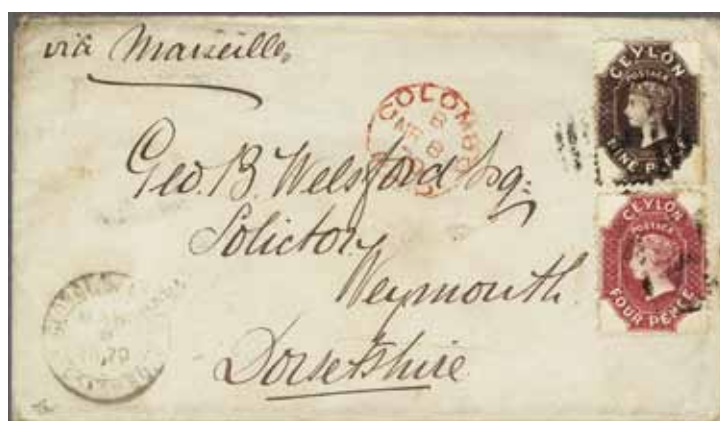 via Marseilles
CEYLON
POSTAGE
NINE PENCE
COLOMBO
Geo. B. Welsford Esq.
Solicitor
Weymouth
Dorsetshire
CEYLON
POSTAGE
FOUR PENCE
70